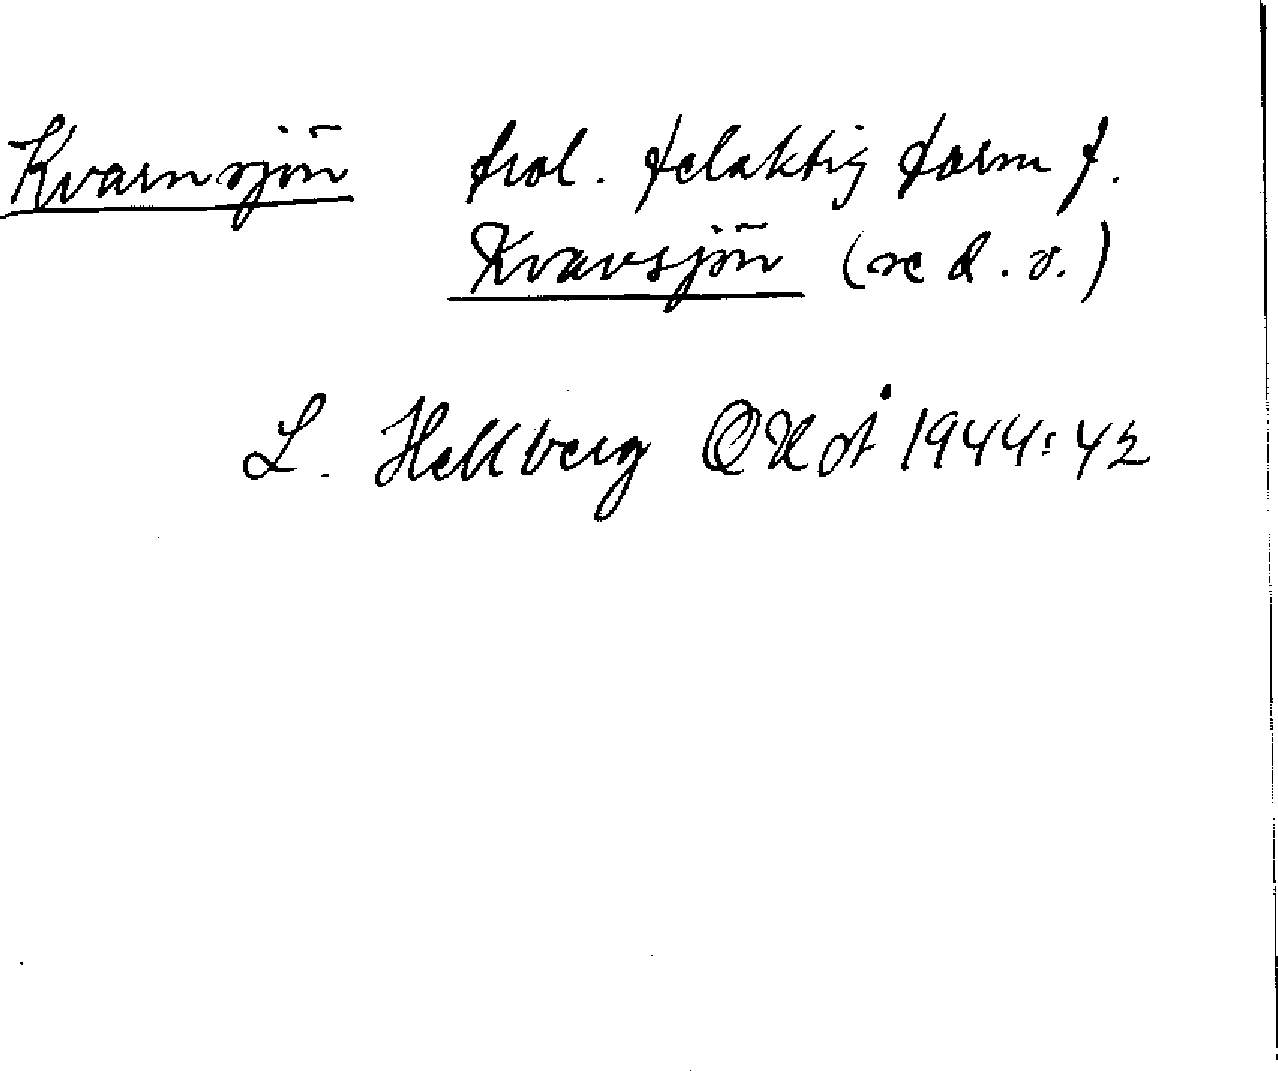 Kvarnsjön trol. felaktig form f.
Kvavsjön (se d. o.)
L. Hellberg ONoÅ 1944:42